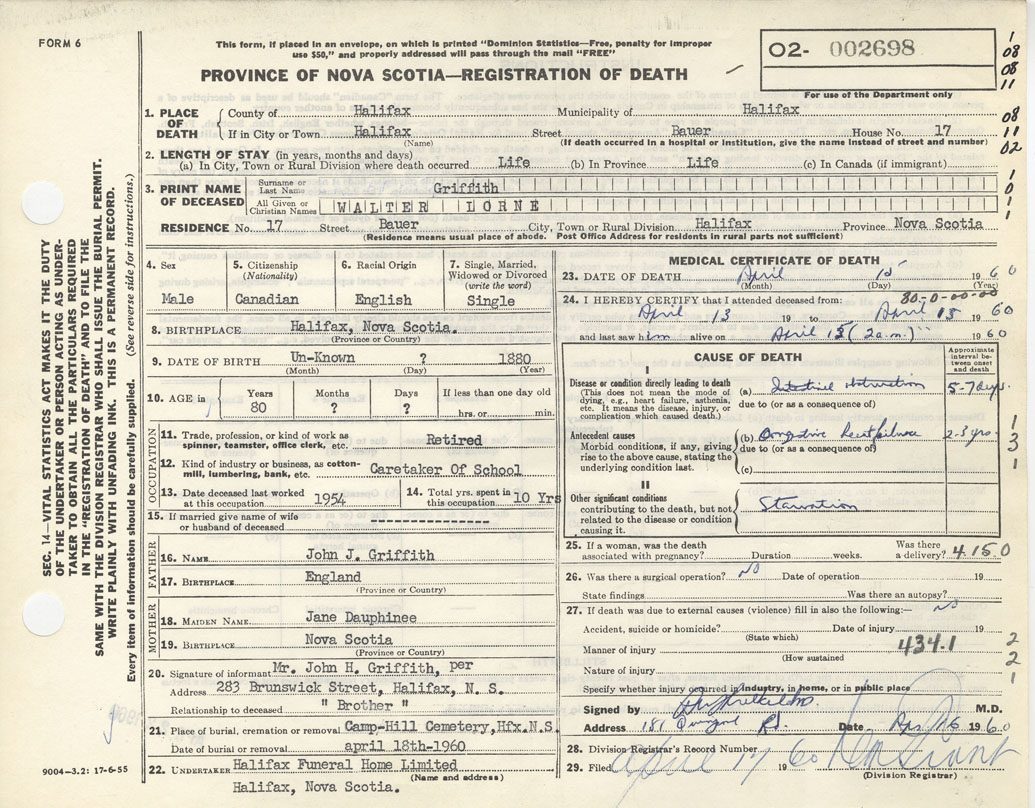 FORM 6
This form, if placed in an envelope, on which is printed "Dominion Statistics—Free, penalty for improper
use $50," and properly addressed will pass through the mail "FREE"
PROVINCE OF NOVA SCOTIA—REGISTRATION OF DEATH
02- 002698
For use of the Department only
1
08
08
11
08
11
02
1
0
1
1
1. PLACE OF DEATH
County of Halifax Municipality of Halifax
If in City or Town Halifax Street Bauer House No. 17
(Name) (If death occurred in a hospital or institution, give the name instead of street and number)
2. LENGTH OF STAY (in years, months and days)
(a) In City, Town or Rural Division where death occurred Life (b) In Province Life (c) In Canada (if immigrant)
3. PRINT NAME OF DECEASED
Surname or Last Name Griffith
All Given or Christian Names WALTER LORNE
RESIDENCE No. 17 Street Bauer City, Town or Rural Division Halifax Province Nova Scotia
(Residence means usual place of abode. Post Office Address for residents in rural parts not sufficient)
4. Sex
Male
5. Citizenship
(Nationality)
Canadian
6. Racial Origin
English
7. Single, Married, Widowed or Divorced
(write the word)
Single
8. BIRTHPLACE Halifax, Nova Scotia.
(Province or Country)
9. DATE OF BIRTH Un-Known ? 1880
(Month) (Day) (Year)
10. AGE in
Years
80
Months
?
Days
?
If less than one day old
hrs. or min.
OCCUPATION
11. Trade, profession, or kind of work as
spinner, teamster, office clerk, etc. Retired
12. Kind of industry or business, as cotton-
mill, lumbering, bank, etc. Caretaker Of School
13. Date deceased last worked
at this occupation 1954
14. Total yrs. spent in
this occupation 10 Yrs
15. If married give name of wife
or husband of deceased ----------------
FATHER
16. NAME John J. Griffith
17. BIRTHPLACE England
(Province or Country)
MOTHER
18. MAIDEN NAME Jane Dauphinee
19. BIRTHPLACE Nova Scotia
(Province or Country)
20. Signature of informant Mr. John H. Griffith, per
Address 283 Brunswick Street, Halifax, N. S.
Relationship to deceased " Brother "
21. Place of burial, cremation or removal Camp-Hill Cemetery, Hfx.N.S.
Date of burial or removal april 18th-1960
22. UNDERTAKER Halifax Funeral Home Limited
(Name and address)
Halifax, Nova Scotia.
MEDICAL CERTIFICATE OF DEATH
23. DATE OF DEATH April 15 1960
(Month) (Day) (Year)
80-0-00-00
24. I HEREBY CERTIFY that I attended deceased from:
April 13 19 to April 15 1960
and last saw him alive on April 15 (2 a.m.) 1960
CAUSE OF DEATH
Approximate interval between onset and death
I
Disease or condition directly leading to death
(This does not mean the mode of
dying, e.g., heart failure, asthenia,
etc. It means the disease, injury, or
complication which caused death.)
(a) Intestinal obstruction 5-7 days.
due to (or as a consequence of)
Antecedent causes
Morbid conditions, if any, giving
rise to the above cause, stating the
underlying condition last.
(b) Congestive heart failure 2-3 yrs.
due to (or as a consequence of)
(c)
1
3
1
II
Other significant conditions
contributing to the death, but not
related to the disease or condition
causing it.
Starvation
25. If a woman, was the death
associated with pregnancy? Duration weeks. Was there a delivery? 4150
26. Was there a surgical operation? NO Date of operation 19
State findings Was there an autopsy?
27. If death was due to external causes (violence) fill in also the following:— NO
Accident, suicide or homicide? Date of injury 19
(State which)
Manner of injury 434.1
(How sustained
Nature of injury
2
2
1
Specify whether injury occurred in industry, in home, or in public place
Signed by M.D.
Address 181 Rd. Date Apr. 16 1960
28. Division Registrar's Record Number
29. Filed April 17 1960
(Division Registrar)
SEC. 14—VITAL STATISTICS ACT MAKES IT THE DUTY
OF THE UNDERTAKER OR PERSON ACTING AS UNDER-
TAKER TO OBTAIN ALL THE PARTICULARS REQUIRED
IN THE "REGISTRATION OF DEATH" AND TO FILE THE
SAME WITH THE DIVISION REGISTRAR WHO SHALL ISSUE THE BURIAL PERMIT.
WRITE PLAINLY WITH UNFADING INK. THIS IS A PERMANENT RECORD.
Every item of information should be carefully supplied. (See reverse side for instructions.)
9004—3.2: 17-6-55